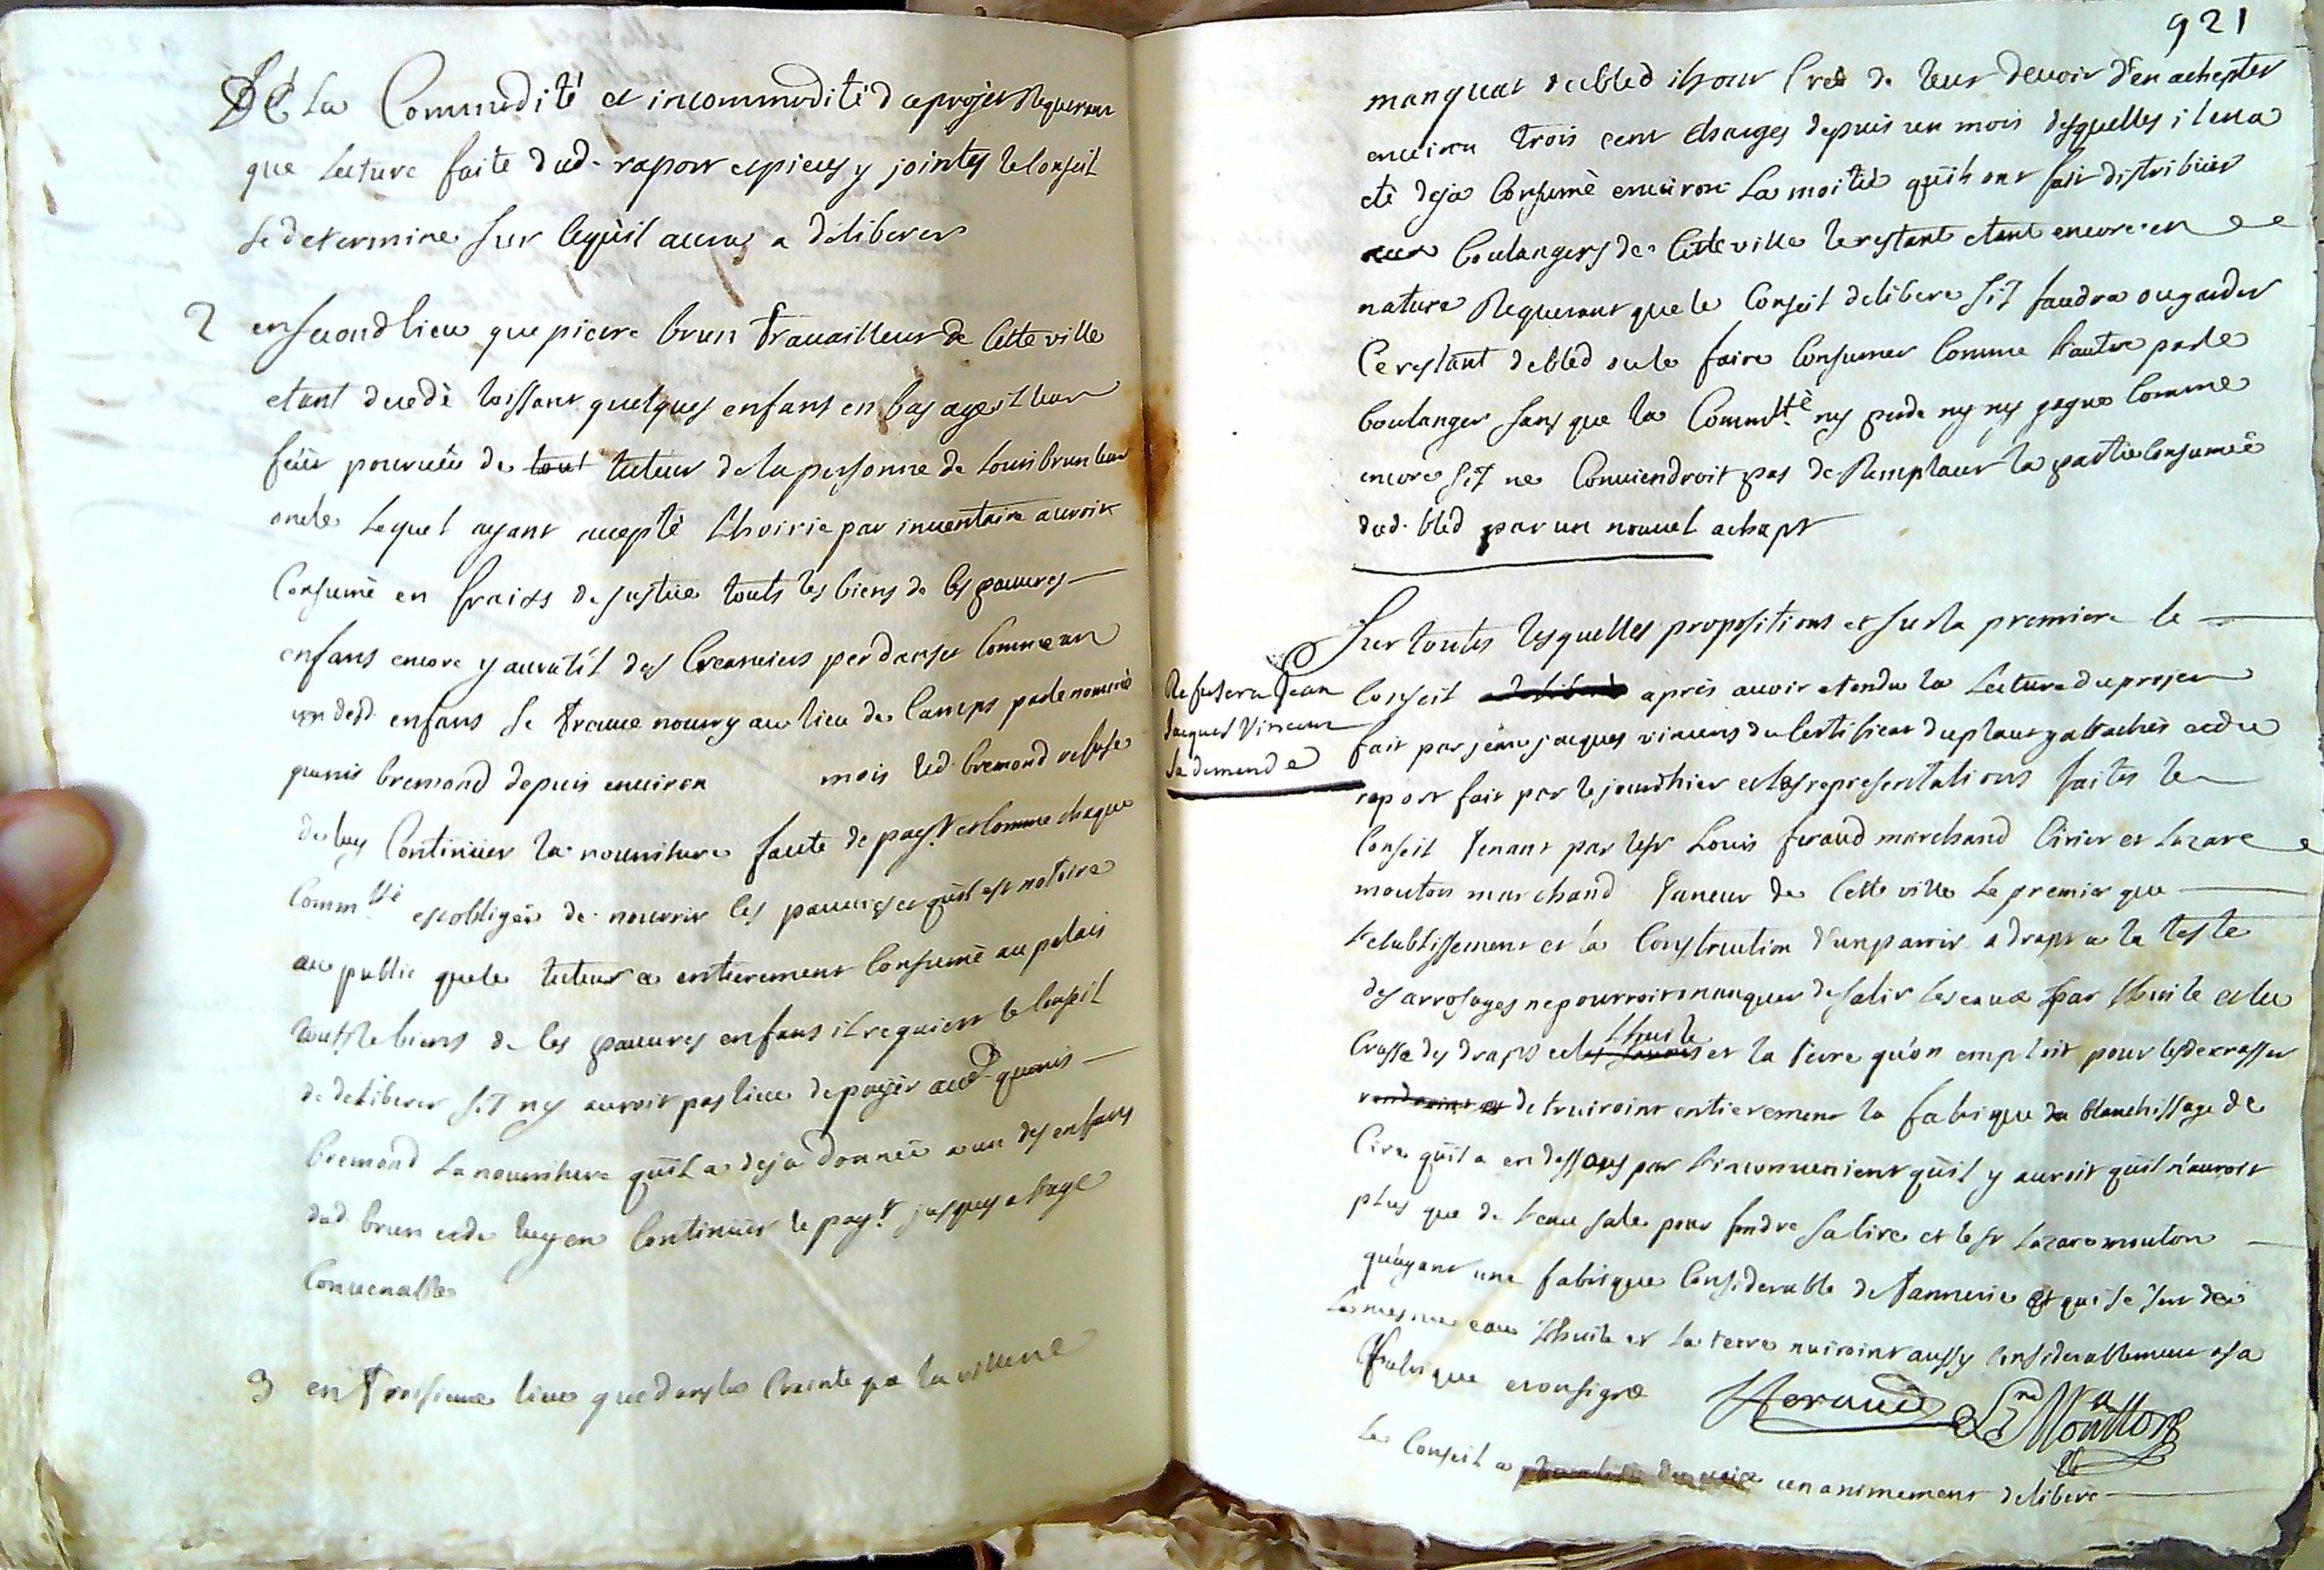 De la Commodité et incommodité d ce projet Requerant
que lecture faite dud. raport et pieces y jointes le Conseil
se determine sur ce qu'il aura a déliberer
2 en second lieu que pierre brun travailleur de Cette ville
etant decedé laissant quelques enfans en bas age il leur
feut pourveu de tuteur de la personne de Louis brun leur
oncle lequel ayant accepté l'hoirie par inventaire auroit
Consumé en fraix de justice touts les biens de Ces pauvres
enfans encore y aura t'il des Creanciers perdants Comme un
un desd. enfans se trouve nourry au lieu de Camps par le nommé
bremond depuis environ mois led. bremond refuse
de luy Continuer la nourriture faute de payt. et Comme chaque
Commté est obligée de nourrir les pauvres et qu'il est notoire
au public que le tuteur a entierement Consumé au palais
touts le biens de Ces pauvres enfans il requiert le Conseil
de deliberer s'il ny auroit pas lieu de payer aud.
bremond la nourriture qu'il a deja donnée a un des enfans
dud. brun et de luy en Continuer le payt. jusques a l'age
Convenable
3 en troisieme lieu que dans la Crainte que la ville ne
921
manquat de bled ils ont Creu de leur devoir d'en achepter
environ trois cent Charges depuis un mois desquelles il en a
eté deja Consumé environ la moitié qu'ils ont fait distribuer
aux boulangers de Cette ville le restant etant encore en
nature Requerant que le Conseil delibere s'il faudra ou garder
Ce restant de bled ou le faire Consumer Comme l'autre par le
boulanger sans que la Commté ny perde ny ny gagne Comme
encore s'il ne Conviendroit pas de Remplacer la partie Consumée
dud. bled par un nouvel achapt
Sur toutes lesquelles propositions et sur la premiere le
Refusera Jean
Jacques Vincens
sa demende
Conseil après avoir etendu la Lecture du projet
fait par jean jacques vincens du Certificat du plant y attachés et du
raport fait par le jourdhier et les representations faites le
Conseil tenant par les sr Louis feraud marchand Cirier et Lazare
mouton marchand taneur de Cette ville le premier que
l'etablissement et la Construction d'un paroir a draps a la teste
des arrosages ne pourroit manquer de salir les eaux par l'huile et la
Crasse des draps et l'huile et la terre qu'on emploit pour les decrasser
detruiroint entierement la fabrique du blanchissage de
Cire qu'il a en dessous par l'inconvenient qu'il y auroit qu'il n'auroit
plus que de l'eau sale pour fondre sa Cire et le sr Lazare mouton
qu'ayant une fabrique Considerable de tannerie et qui se sert de
la mesme eau l'huile et la terre nuiroint aussy Considerablement a sa
fabrique et ont signé Feraud Lre Moutton
Le Conseil a unanimement deliberé